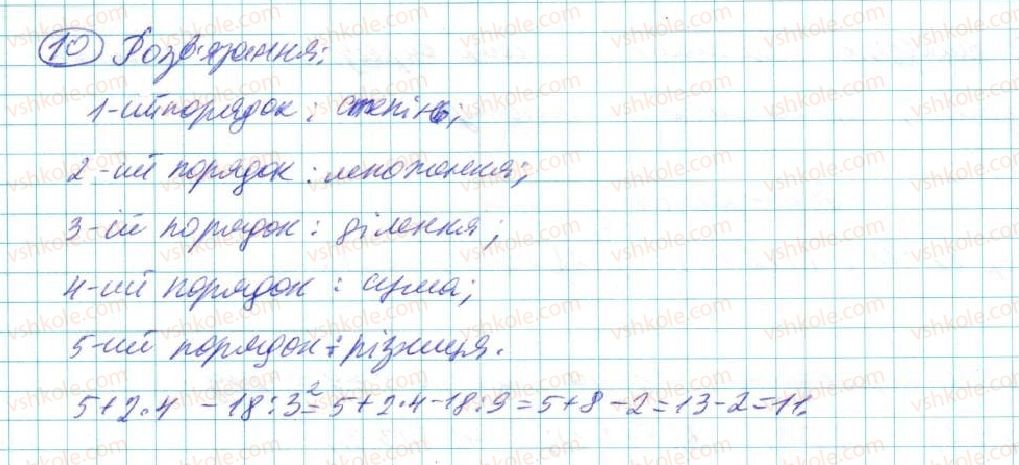 10 Розв'язання:
1-ий порядок: степінь;
2-ий порядок: множення;
3-ій порядок: ділення;
4-ий порядок: сума;
5-ий порядок: різниця.
5+2·4 -18:3²=5+2·4-18:9=5+8-2=13-2=11.